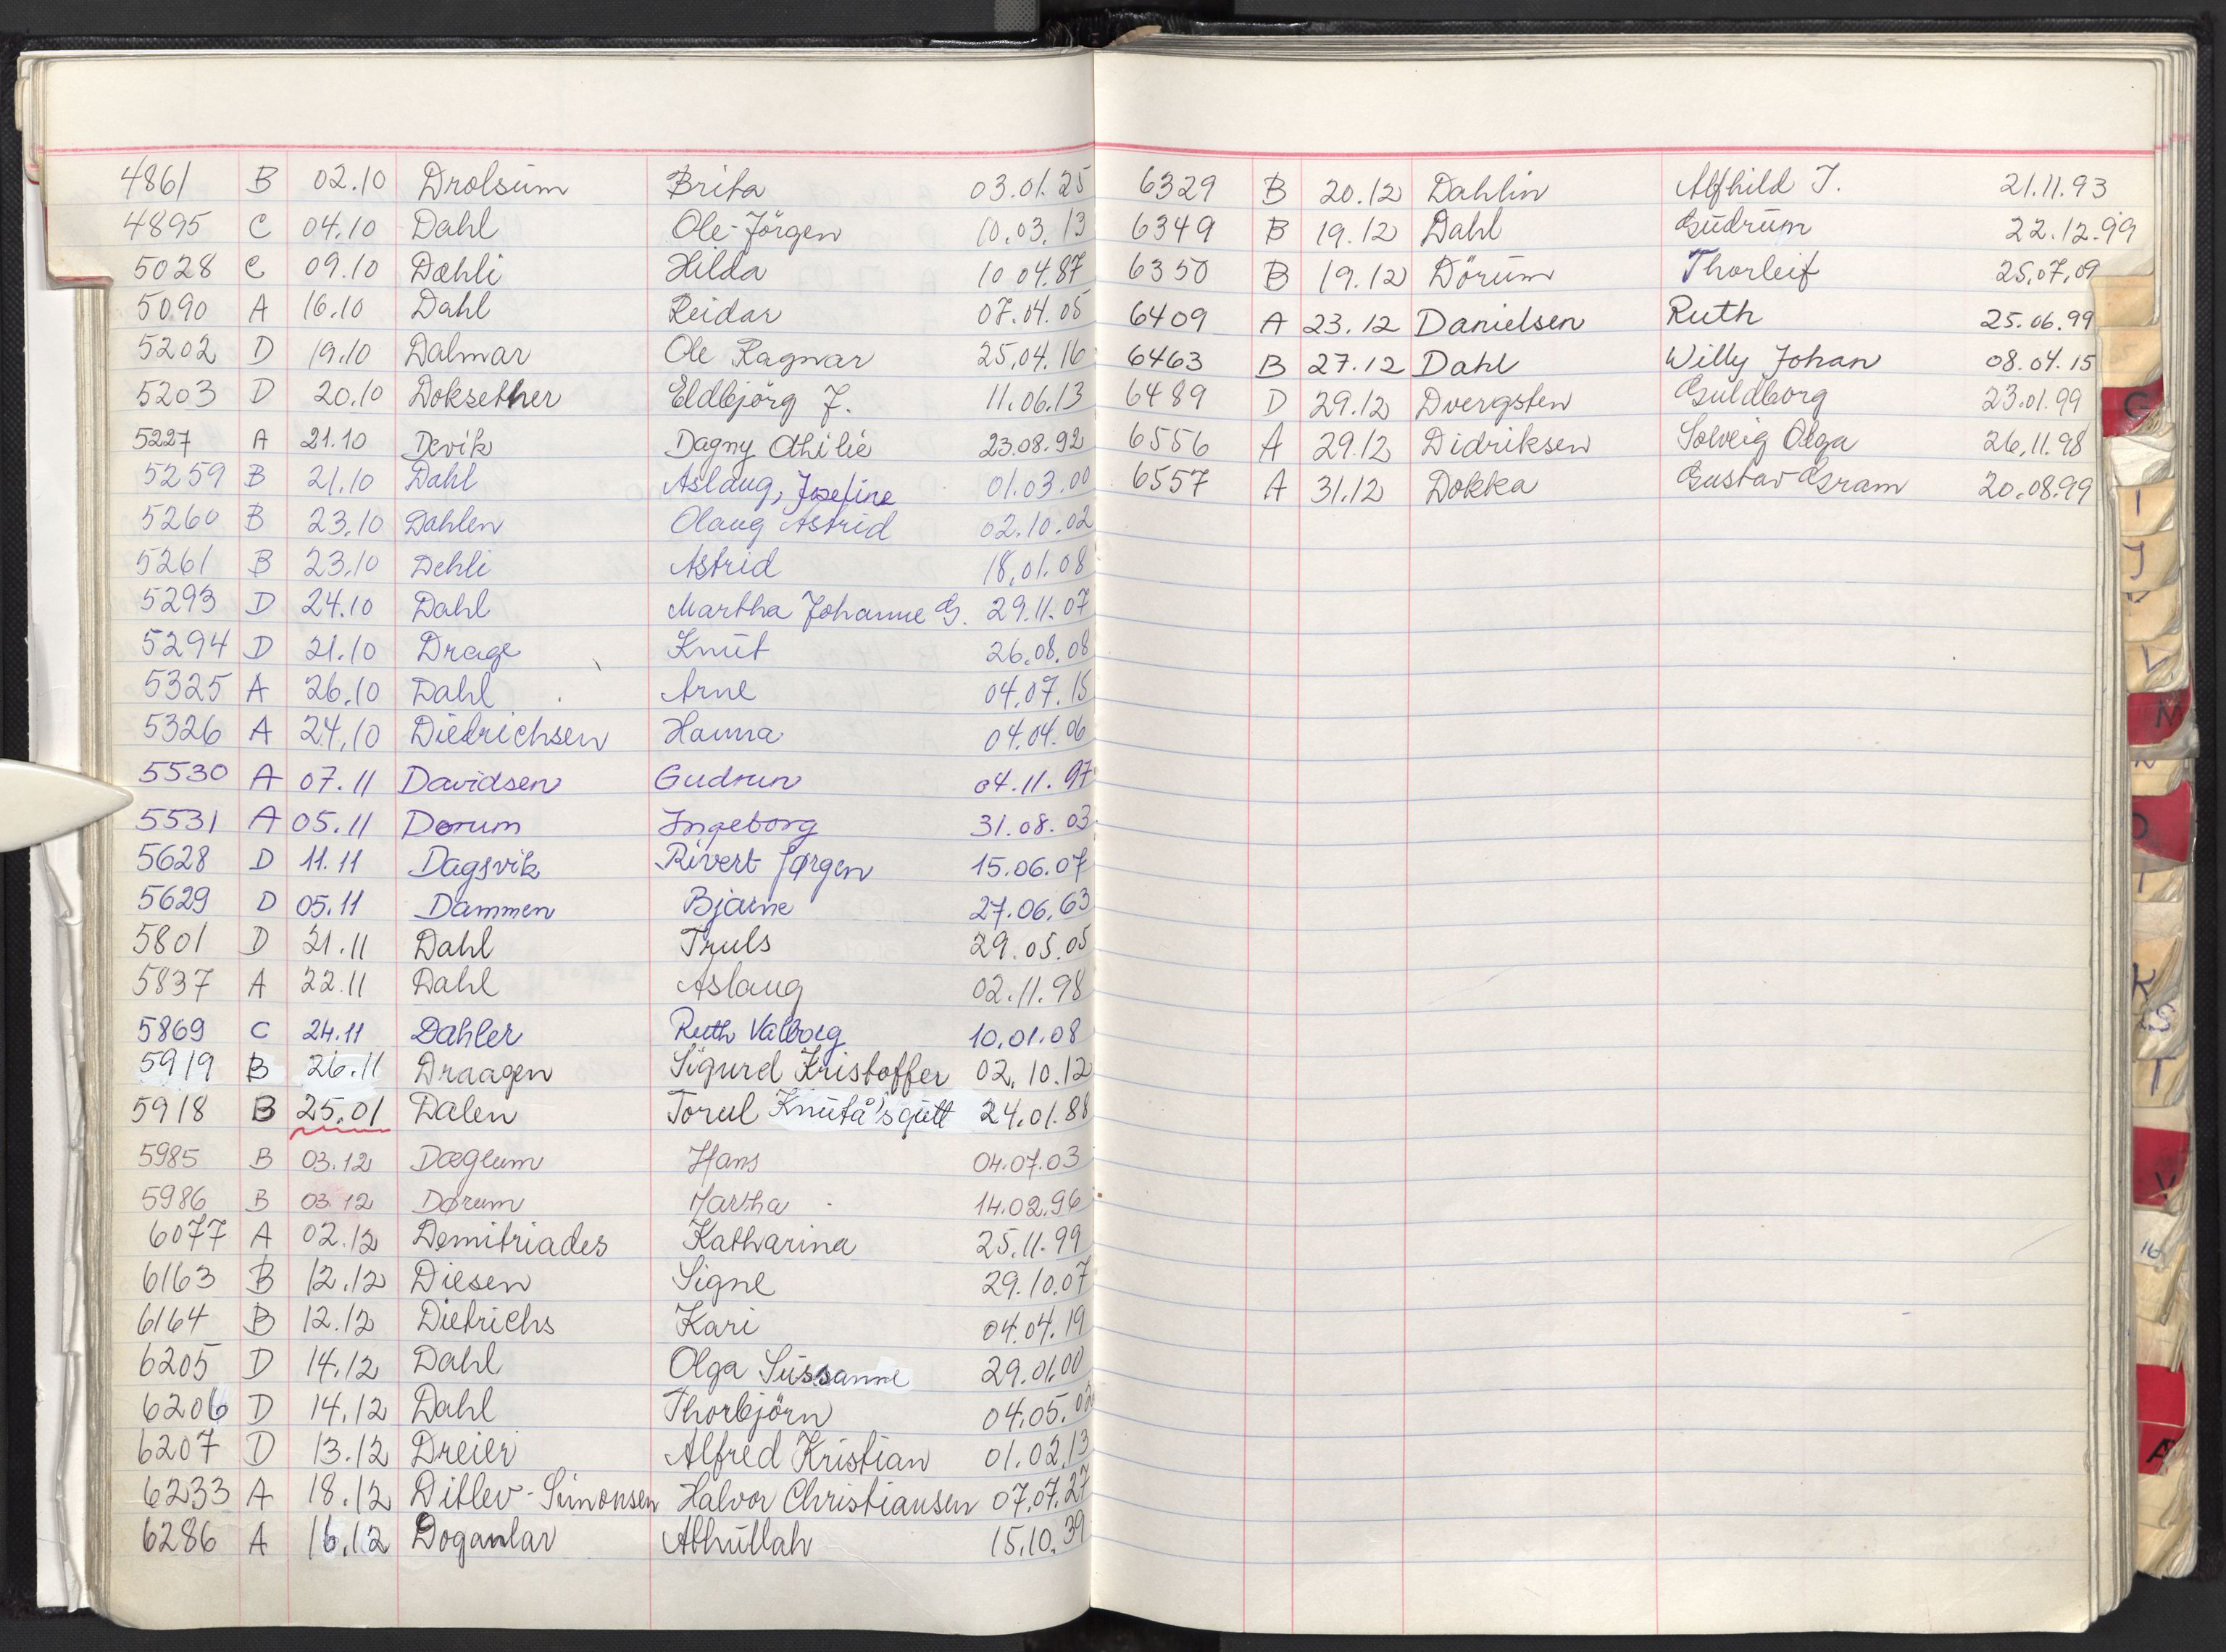 4861 B 02.10 Drolsum Brita 03.01.25
4895 C 04.10 Dahl Ole-Jörgen 10.03.13
5028 C 09.10 Dæhli Hilda 10 04.87
5090 A 16.10 Dahl Reidar 07.04.05
5202 D 19.10 Dalmar Ole Ragnar 25.04.16
5203 D 20.10 Doksether Eldbjörg J. 11.06.13
5227 A 21.10 Devik Dagny Othilie 23.08.92
5259 B 21.10 Dahl Aslaug, Josefine 01.03.00
5260 B 23.10 Dahlen Olaug Astrid 02.10.02
5261 B 23.10 Dehli Astrid 18.01.08
5293 D 24.10 Dahl Martha Johanne G. 29.11.07
5294 D 21.10 Drage Knut 26.08.08
5325 A 26.10 Dahl Arne 04.07.15
5326 A 24.10 Diedrichsen Hanna 04.04.06
5530 A 07.11 Davidsen Gudrun 04.11.97
5531 A 05.11 Dørum Ingeborg 31.08.03
5628 D 11.11 Dagsvik Rivert Jørgen 15.06.07
5629 D 05.11 Dammen Bjarne 27.06.63
5801 D 21.11 Dahl Truls 29.05.05
5837 A 22.11 Dahl Aslaug 02.11.98
5869 C 24.11 Dahler Ruth Valborg 10.01.08
5919 B 26.11 Draagen Sigurd Kristoffer 02.10.12
5918 B 25.01 Dalen Torul 24.01.88
5985 B 03.12 Dæglum Hans 04.07.03
5986 B 03.12 Dørum Martha 14.02.96
6077 A 02.12 Demitriades Katharina 25.11.99
6163 B 12.12 Diesen Signe 29.10.07
6164 B 12.12 Dietrichs Kari 04.04.19
6205 D 14.12 Dahl Olga Sussanne 29.01.00
6206 D 14.12 Dahl Thorbjörn 04.05.02
6207 D 13.12 Dreier Alfred Kristian 01.02.13
6233 A 18.12 Ditlev-Simonsen Halvor Christiansen 07.07.27
6286 A 16.12 Doganlar Abhullah 15.10.39
6329 B 20.12 Dahlin Alfhild J. 21.11.93
6349 B 19.12 Dahl Gudrum 22.12.99
6350 B 19.12 Dörum Thorleif 25.07.09
6409 A 23.12 Danielsen Ruth 25.06.99
6463 B 27.12 Dahl Willy Johan 08.04.15
6489 D 29.12 Dvergsten Guldborg 23.01.99
6556 A 29.12 Didriksen Solveig Olga 26.11.98
6557 A 31.12 Dokka Gustav Gram 20.08.99
G
I
J
V
M
K
S
T
V